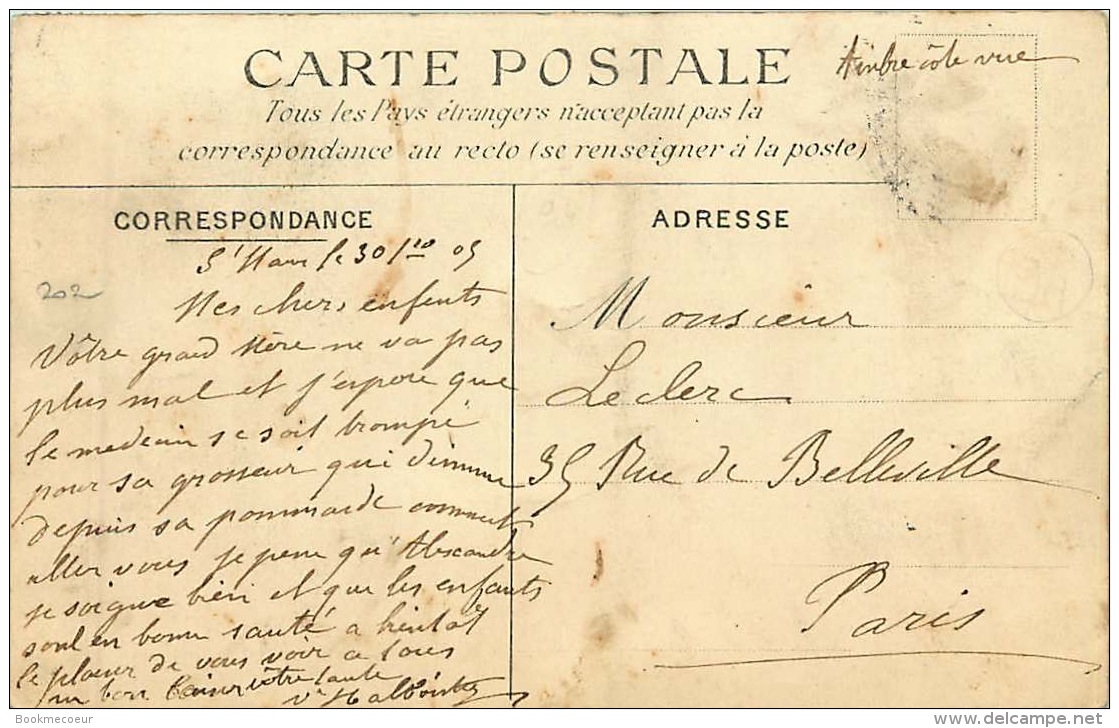 CARTE POSTALE
Timbre côté vue
Tous les Pays étrangers n'acceptant pas la
correspondance au recto (se renseigner à la poste)
CORRESPONDANCE
le 30/10 05
202
Mes chers enfants
Vôtre grand Mère ne va pas
plus mal et j'espere que
le medecin se soit trompé
pour sa grosseur qui diminue
depuis sa pommade comment
aller vous je pense qu'Alexandre
se soigne bien et que les enfants
sont en bonne santé a bientôt
le plaisir de vous voir a tous
un bon baiser vôtre tante
ADRESSE
Monsieur
Leclerc
35 Rue de Belleville
Paris
Bookmecoeur
www.delcampe.net